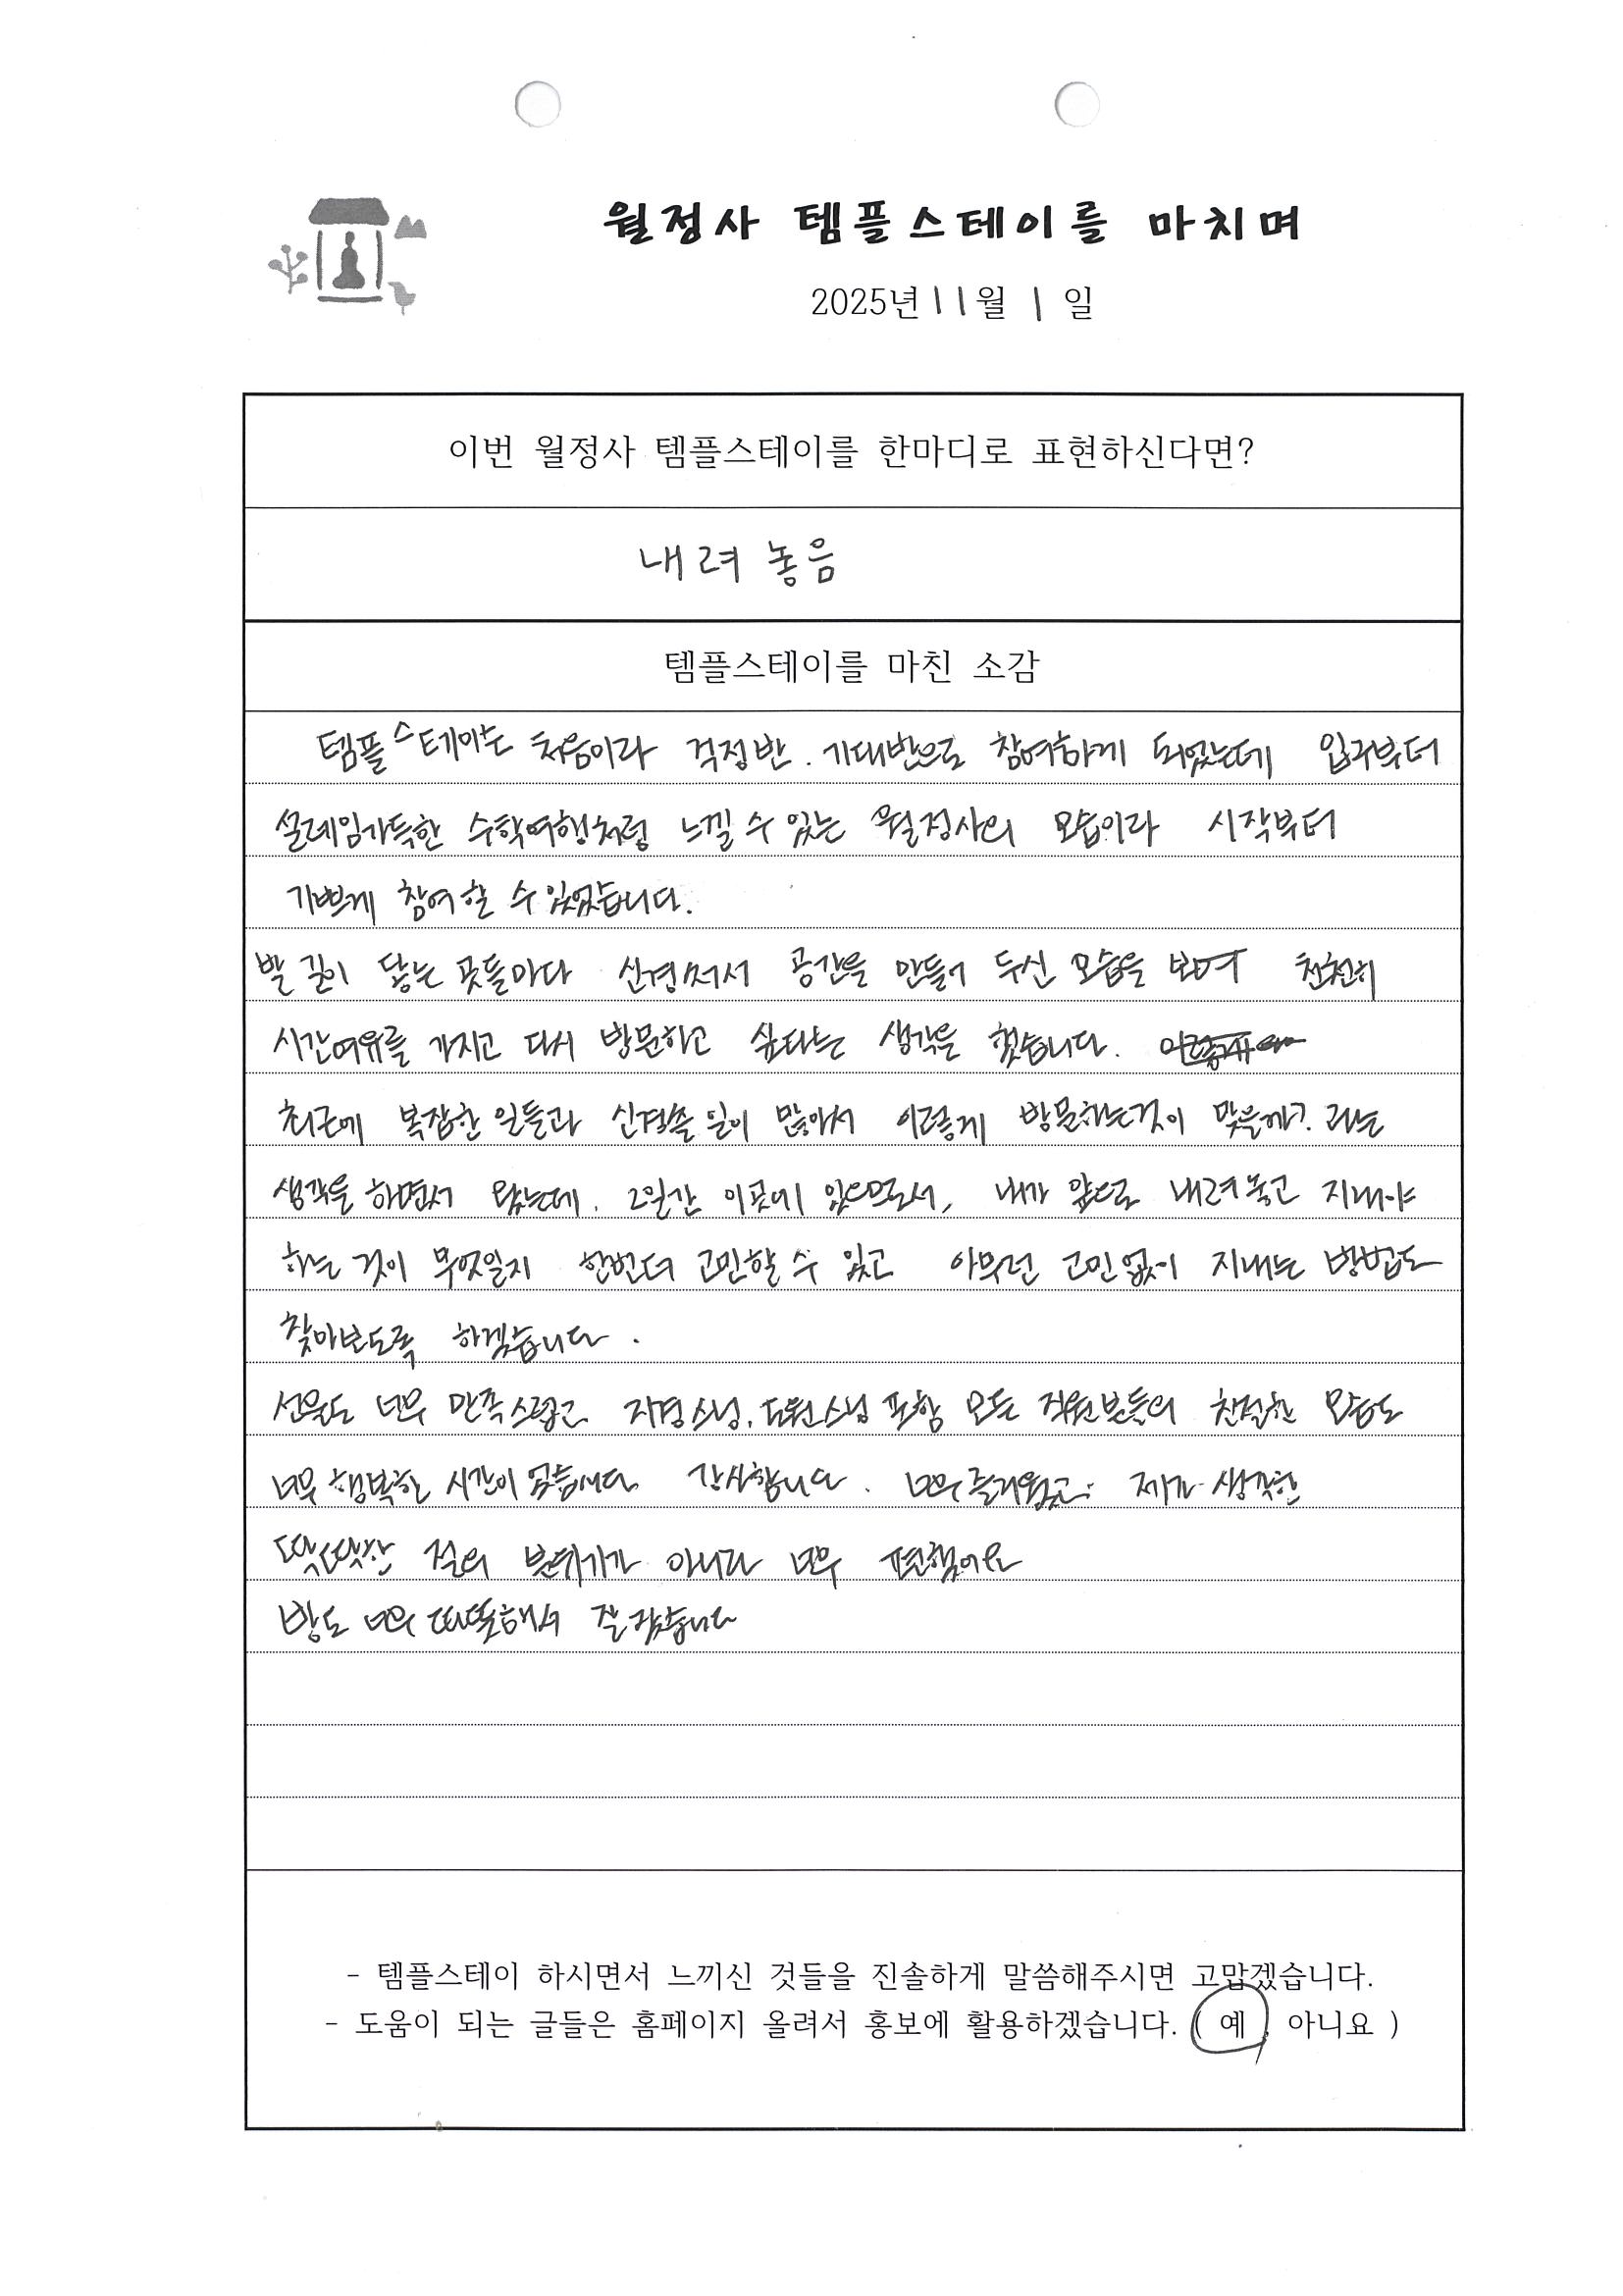 월정사 템플스테이를 마치며
2025년 11월 1일
이번 월정사 템플스테이를 한마디로 표현하신다면?
내려놓음
템플스테이를 마친 소감
템플스테이는 처음이라 걱정반. 기대반으로 참여하게 되었는데 입구부터
설레임가득한 수학여행처럼 느낄 수 있는 월정사의 모습이라 시작부터
기쁘게 참여할 수 있었습니다.
발길이 닿는 곳들마다 신경써서 공간을 만들어 두신 모습을 보며 천천히
시간여유를 가지고 다시 방문하고 싶다는 생각을 했습니다.
최근에 복잡한 일들과 신경쓸 일이 많아서 이렇게 방문하는것이 맞을까? 라는
생각을 하면서 왔는데. 2일간 이곳에 있으므로서, 내가 앞으로 내려놓고 지내야
하는 것이 무엇일지 한번더 고민할 수 있고 아무런 고민없이 지내는 방법도
찾아보도록 하겠습니다.
선욱도 너무 만족스럽고 지경스님, 도원스님 포함 모든 직원분들의 친절한 모습도
너무 행복한 시간이 었습니다 감사합니다. 너무 즐거웠고. 제가 생각한
딱딱한 절의 분위기가 아니라 너무 편했어요
방도 너무 따뜻해서 잘 잤습니다
- 템플스테이 하시면서 느끼신 것들을 진솔하게 말씀해주시면 고맙겠습니다.
- 도움이 되는 글들은 홈페이지 올려서 홍보에 활용하겠습니다. ( 예 , 아니요 )